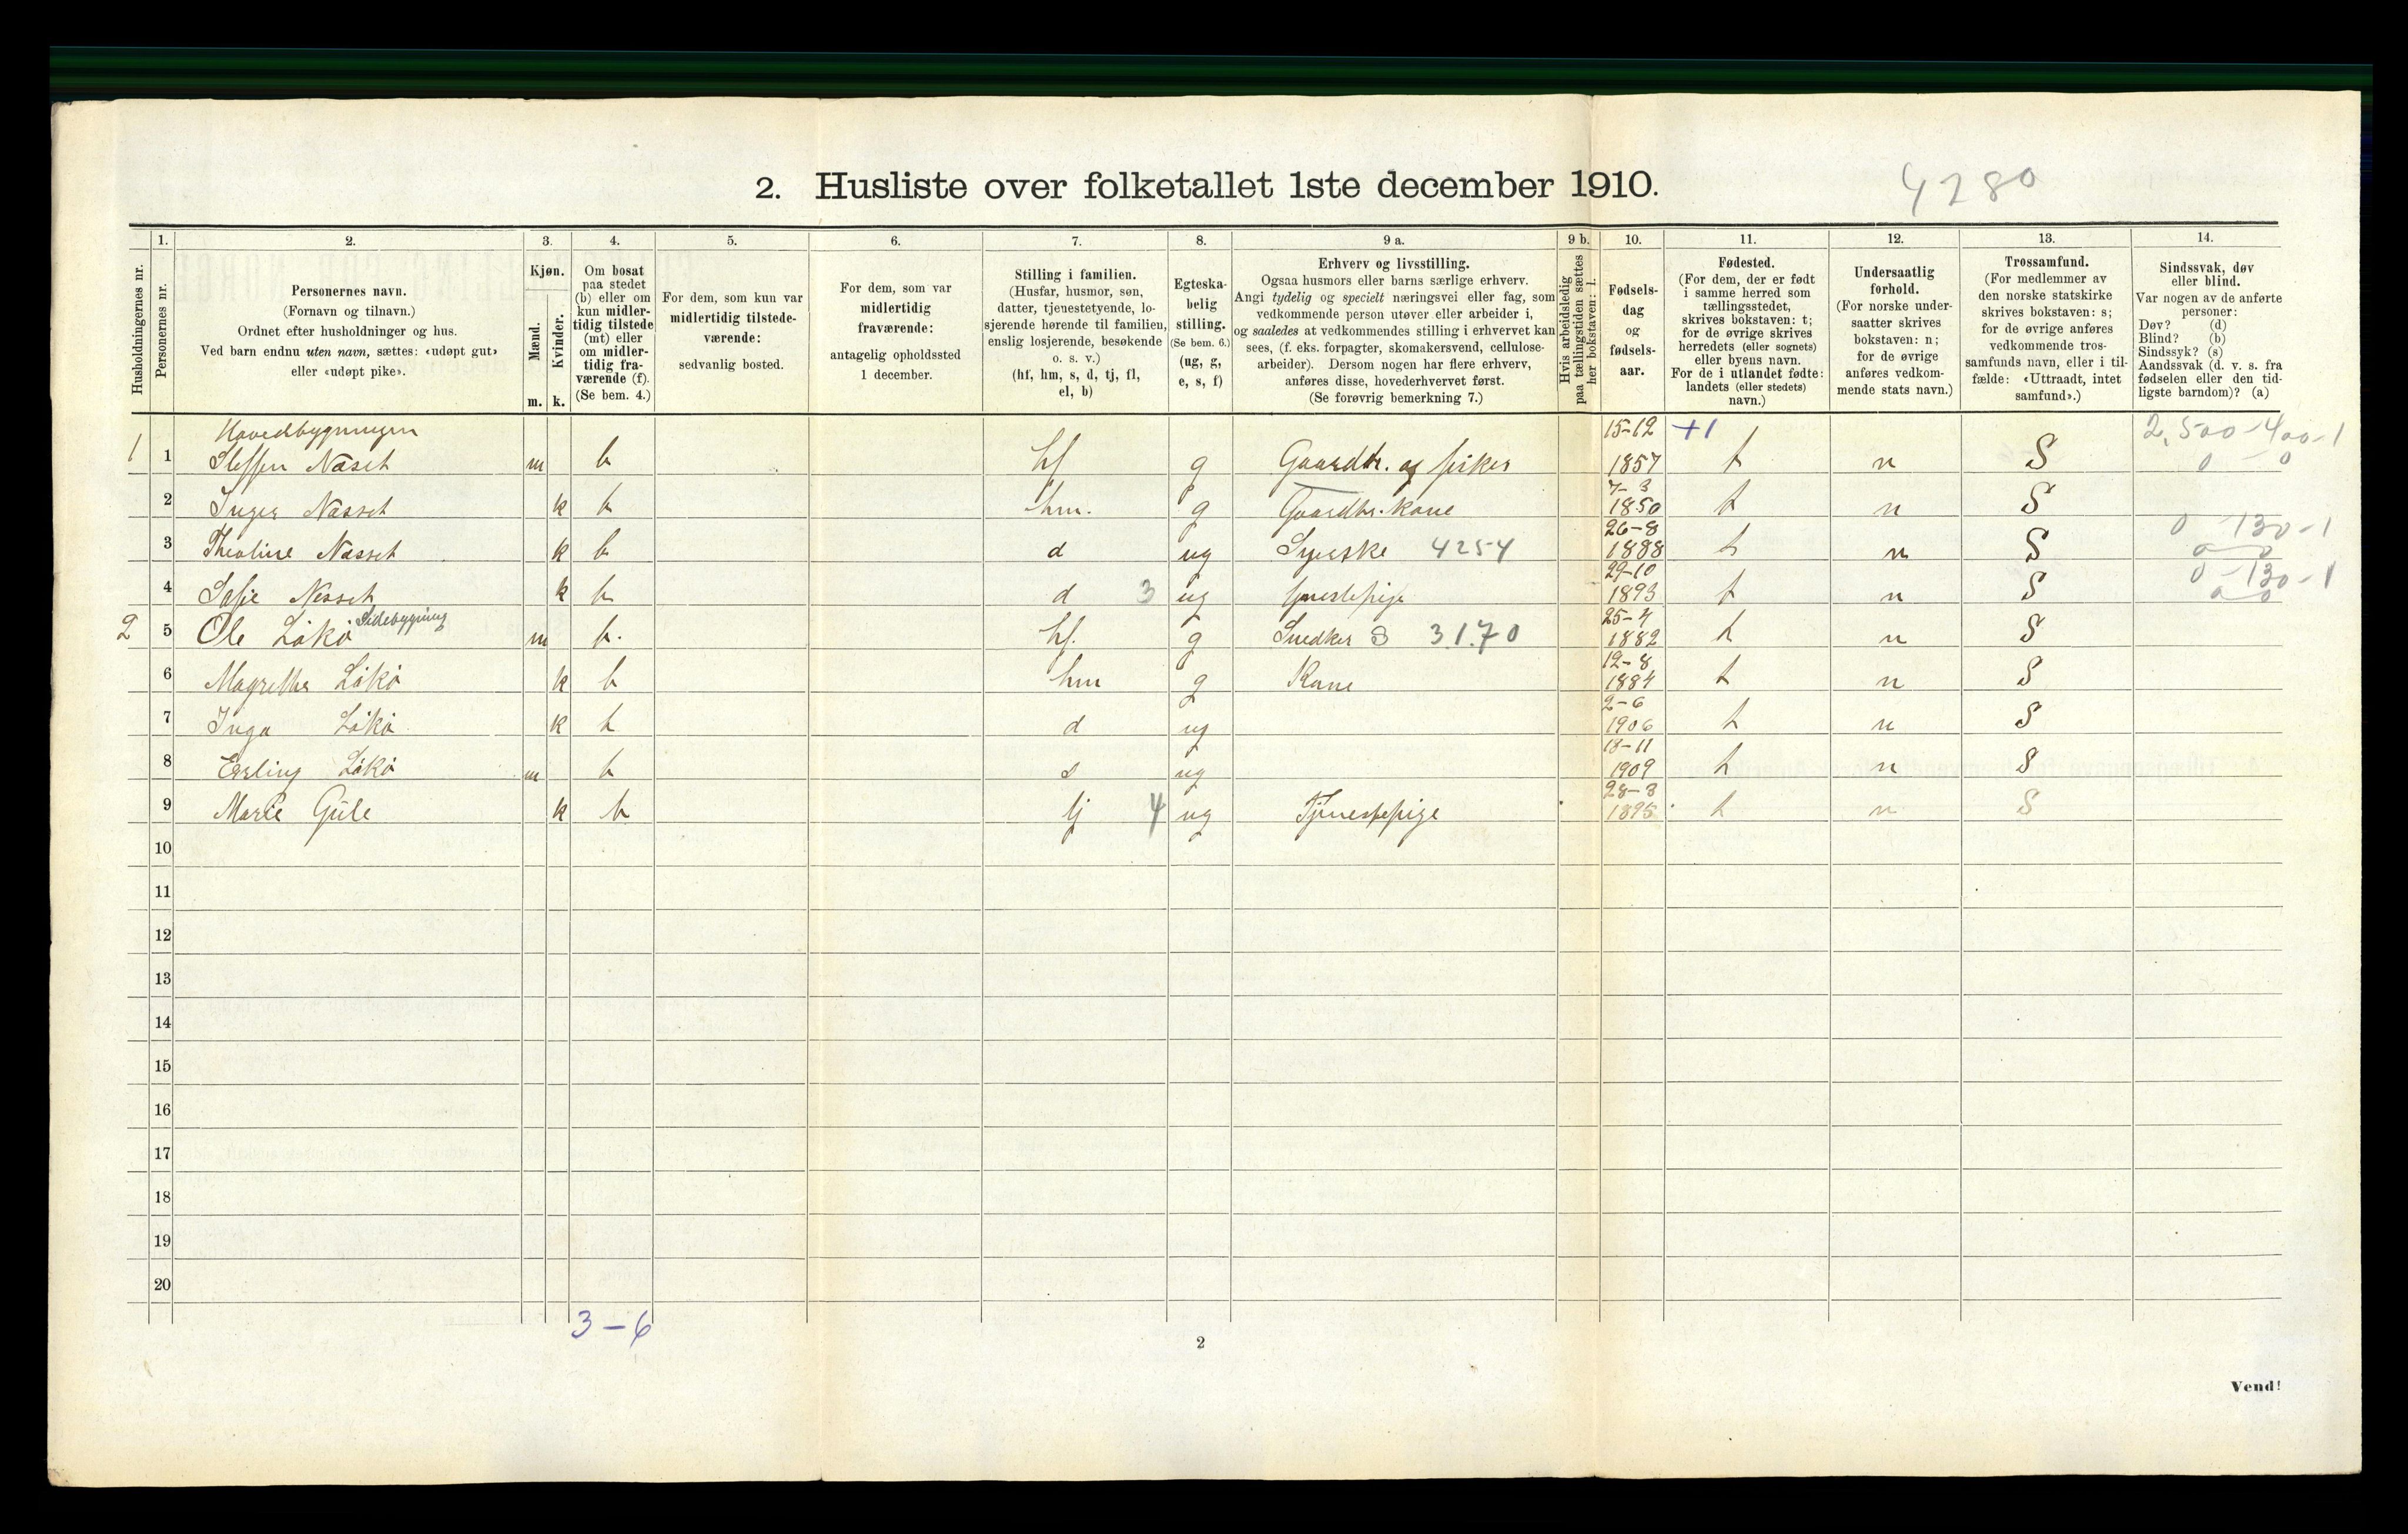 2. Husliste over folketallet 1ste december 1910.
4280
Husholdningernes nr.
1.
Personernes nr.
2.
Personernes navn.
(Fornavn og tilnavn.)
Ordnet efter husholdninger og hus.
Ved barn endnu uten navn, sættes: «udøpt gut»
eller «udøpt pike».
3.
Kjøn.
Mænd.
Kvinder.
m. k.
4.
Om bosat
paa stedet
(b) eller om
kun midler-
tidig tilstede
(mt) eller
om midler-
tidig fra-
værende (f).
(Se bem. 4.)
5.
For dem, som kun var
midlertidig tilstede-
værende:
sedvanlig bosted.
6.
For dem, som var
midlertidig
fraværende:
antagelig opholdssted
1 december.
7.
Stilling i familien.
(Husfar, husmor, søn,
datter, tjenestetyende, lo-
sjerende hørende til familien,
enslig losjerende, besøkende
o. s. v.)
(hf, hm, s, d, tj, fl,
el, b)
8.
Egteska-
belig
stilling.
(Se bem. 6.)
(ug, g,
e, s, f)
9 a.
Erhverv og livsstilling.
Ogsaa husmors eller barns særlige erhverv.
Angi tydelig og specielt næringsvei eller fag, som
vedkommende person utøver eller arbeider i,
og saaledes at vedkommendes stilling i erhvervet kan
sees, (f. eks. forpagter, skomakersvend, cellulose-
arbeider). Dersom nogen har flere erhverv,
anføres disse, hovederhvervet først.
(Se forøvrig bemerkning 7.)
9 b.
Hvis arbeidsledig
paa tællingstiden sættes
her bokstaven: l.
10.
Fødsels-
dag
og
fødsels-
aar.
11.
Fødested.
(For dem, der er født
i samme herred som
tællingsstedet,
skrives bokstaven: t;
for de øvrige skrives
herredets (eller sognets)
eller byens navn.
For de i utlandet fødte:
landets (eller stedets)
navn.)
12.
Undersaatlig
forhold.
(For norske under-
saatter skrives
bokstaven: n;
for de øvrige
anføres vedkom-
mende stats navn.)
13.
Trossamfund.
(For medlemmer av
den norske statskirke
skrives bokstaven: s;
for de øvrige anføres
vedkommende tros-
samfunds navn, eller i til-
fælde: «Uttraadt, intet
samfund».)
14.
Sindssvak, døv
eller blind.
Var nogen av de anførte
personer:
Døv? (d)
Blind? (b)
Sindssyk? (s)
Aandssvak (d. v. s. fra
fødselen eller den tid-
ligste barndom)? (a)
Hovedbygningen 15-12 +1 2,500-400-1
1 1 Steffen Næset m b hf g Gaardbr. og fisker 1857 t n S 0 0
7-3
2 Inger Næsset k b hm. g Gaardbr. kone 1850 t n S
26-8 0-130-1
3 Theoline Næsset k b d ug Syerske 4254 1888 t n S 0 0
29-10 0-130-1
4 Næsset k b d 3 ug 1893 t n S 0 0
Sidebygning 25-4
2 5 Ole Løkø m b. hf. g Snedker S 31.70 1882 t n S
12-8
6 Magrethe Løkø k b hm g Kone 1884 t n S
2-6
7 Inga Løkø k b d ug 1906 t n S
13-11
8 Erling Løkø m b s ug 1909 t n S
28-3
9 Marie Gule k b tj 4 ug Tjenestepige 1895 t n S
10
11
12
13
14
15
16
17
18
19
20
3-6
2
Vend!